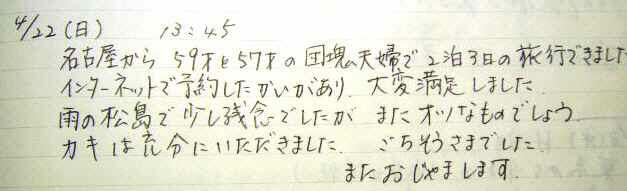 4/22(日) 13:45
名古屋から 59才と57才の団塊夫婦で2泊3日の旅行できました
インターネットで予約したかいがあり、大変満足しました。
雨の松島で少し残念でしたが またオツなものでしょう。
カキは充分にいただきました。 ごちそうさまでした。
またおじゃまします。